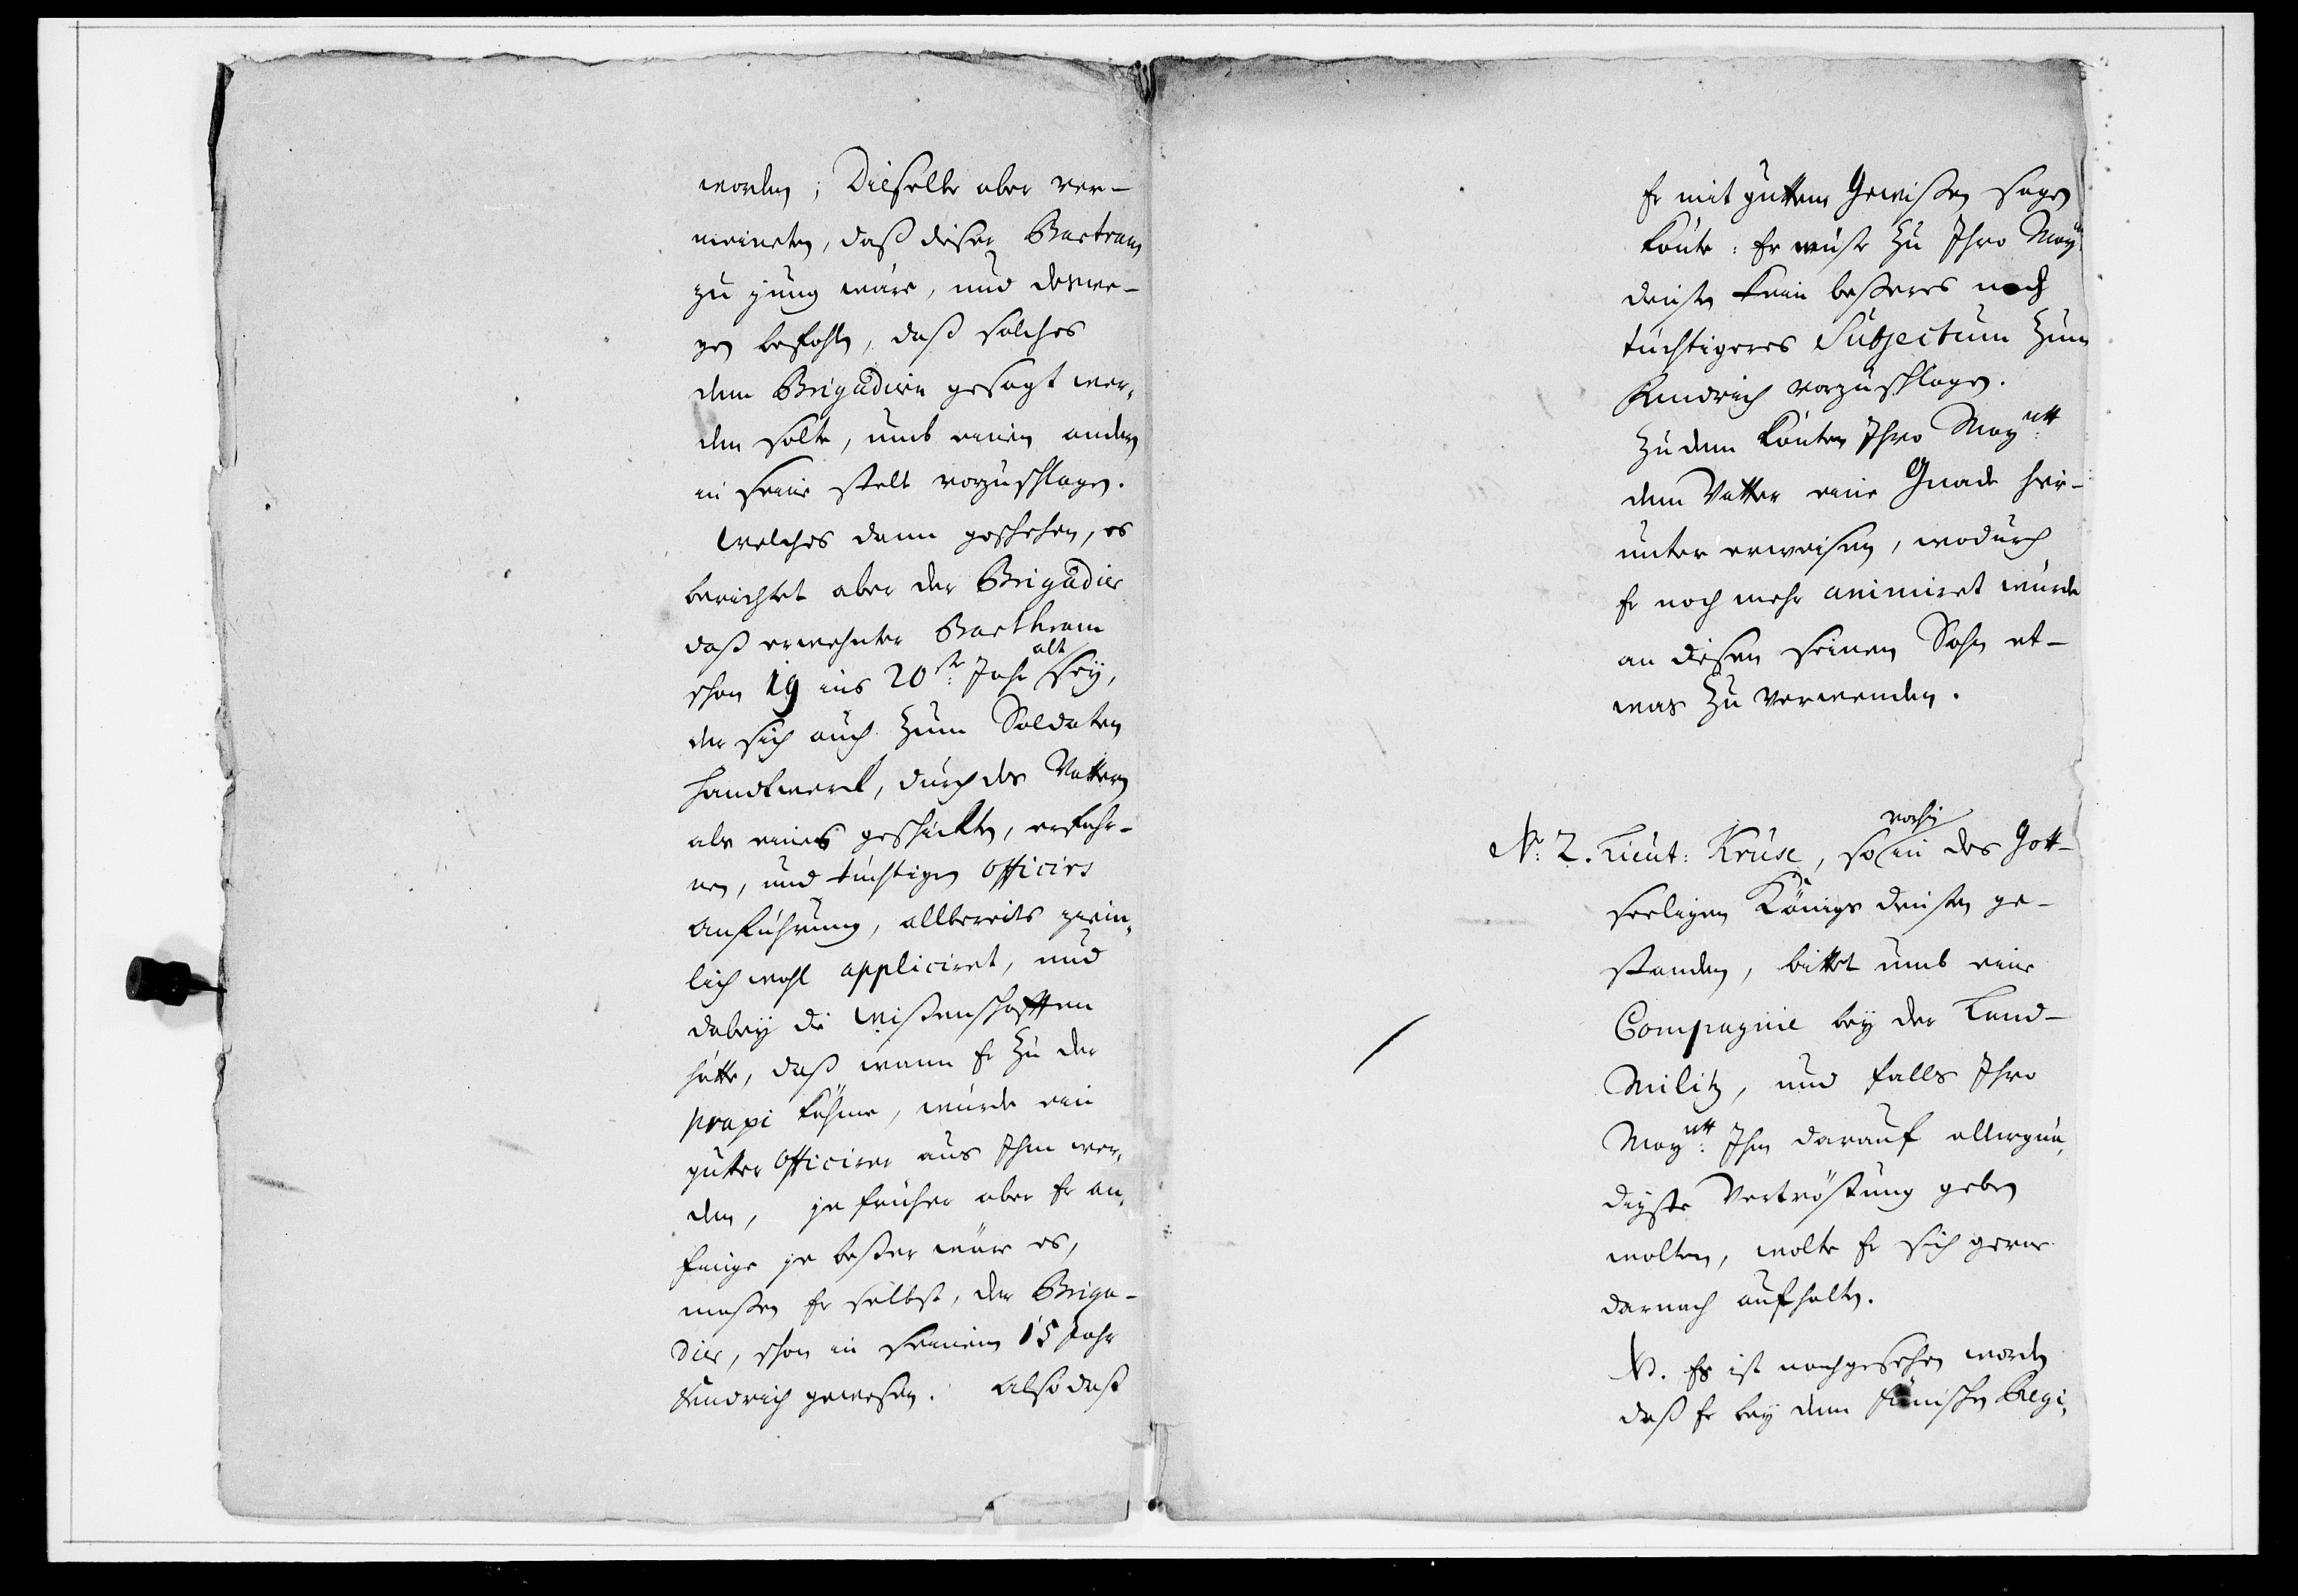 worden; Dieselbe aber ver-
meineten, daß dieser Bartram
zu jung wäre, und deswe-
gen befohln, daß solches
dem Brigadirn gesagt wer,
den solte, umb einen andern
in seine stelle vorzuschlagen.
Welches dann geschehen, es
berichtet aber der Brigadier
daß erwehnter Barthram
alt
schon 19 ins 20ste: Jahr sey,
der sich auch zum Soldaten
Handtwerck, durch des Vattern
als eines geschickten, erfahr-
nen, und tüchtigen Officirs
Anführung, allbereits ziem,
lich wohl appliciret, und
dabey die Wißenschafften
hätte, daß wann Er zu der
praxi kähme, würde ein
gutter Officirer aus Ihm wer,
den, je früher aber Er an,
finge je beßer wäre es,
maßen Er selbst, der Briga-
dier, schon in seinem 15 Jahr
Fendrich gewesen. Also daß
Er mit guttem Gewißen sagen
könte: Er wüste zu Ihro Maytt:
deinsten kein beßeres noch
tüchtigeres Subjectum zum
Fendrich vorzuschlagen.
Zu dem könten Ihro Maytt:
dem Vatter eine Gnade hier-
unter erweisen, wodurch
Er noch mehr animiret würde
an diesen seinen Sohn et-
was zu verwenden.
vorhin
No: 2. Lieut: Kruse, so in des Gott-
seeligen Königs deinsten ge-
standen, bittet umb eine
Compagnie bey der Land-
Militz, und falls Ihro
Maytt: Ihm darauf allergnä,
digste Vertröstung geben
wolten, wolte Er sich gerne
darnach aufhalten.
NB. Es ist nachgesehen worden
daß Er bey dem Fünischen Regi,